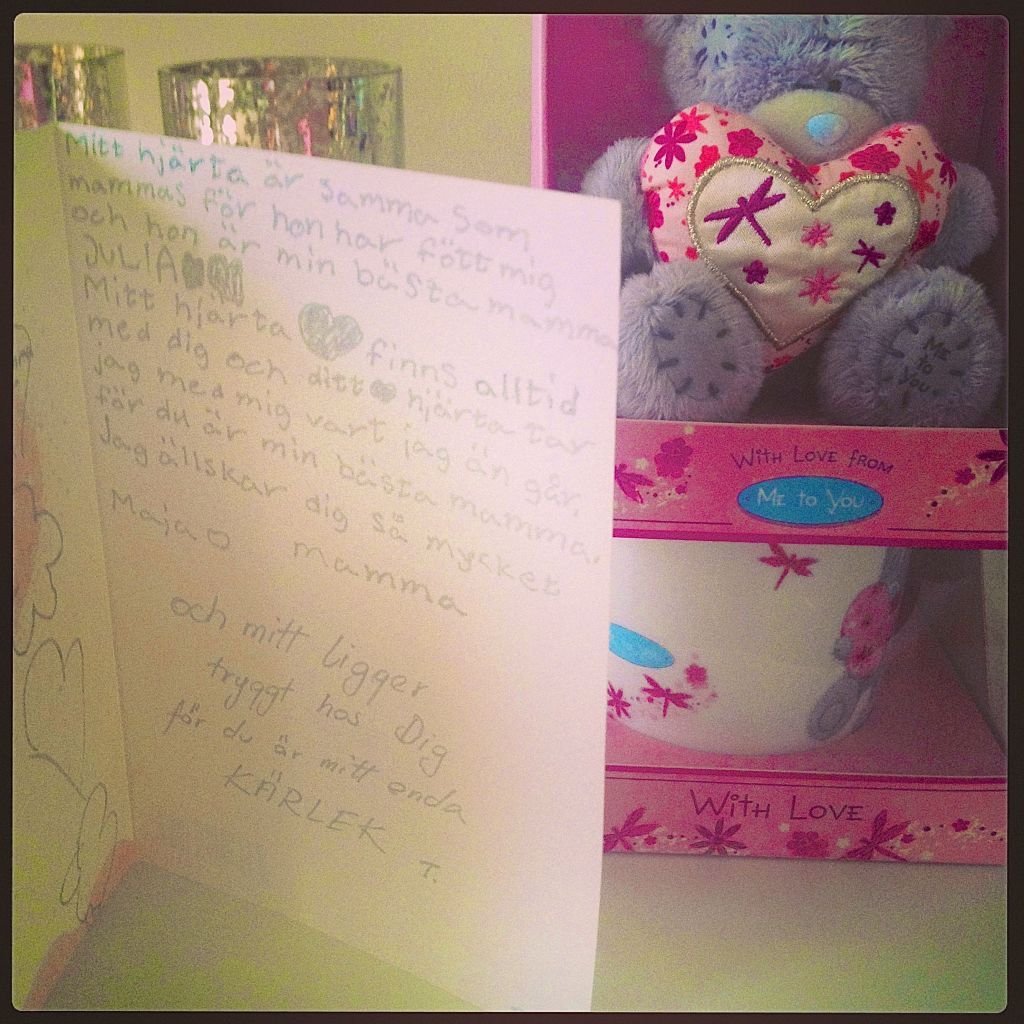 Mitt hjärta är samma som
mammas för hon har fött mig
och hon är min bästa mamma
JULIA
Mitt hjärta finns alltid
med dig och ditt hjärta tar
jag med mig vart jag än går,
för du är min bästa mamma.
Jag ällskar dig så mycket
Maja mamma
och mitt ligger
tryggt hos Dig
för du är mitt enda
KÄRLEK
T.
Me
to
you
WITH LOVE FROM
ME TO YOU
WITH LOVE